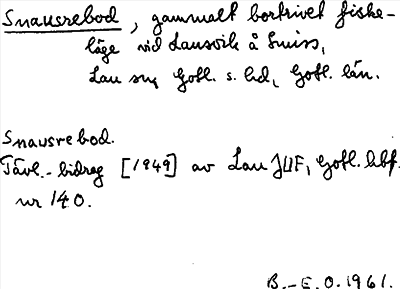 Snausrebod, gammalt bortrivet fiske-
läge vid Lausvik å Sniss,
Lau sn, Gotl. s. hd, Gotl. län.
Snausrebod.
Tävl.-bidrag [1949] av Lau JUF, Gotl. hbf.
nr 140.
B.-E.O. 1961.